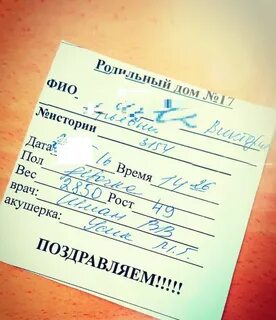 Родильный дом №17
ФИО Виктория
№истории 3154
Дата 16 Время 14-26
Пол девочка
Вес 2850 Рост 49
врач: В.В
акушерка: М.Г.
ПОЗДРАВЛЯЕМ!!!!!